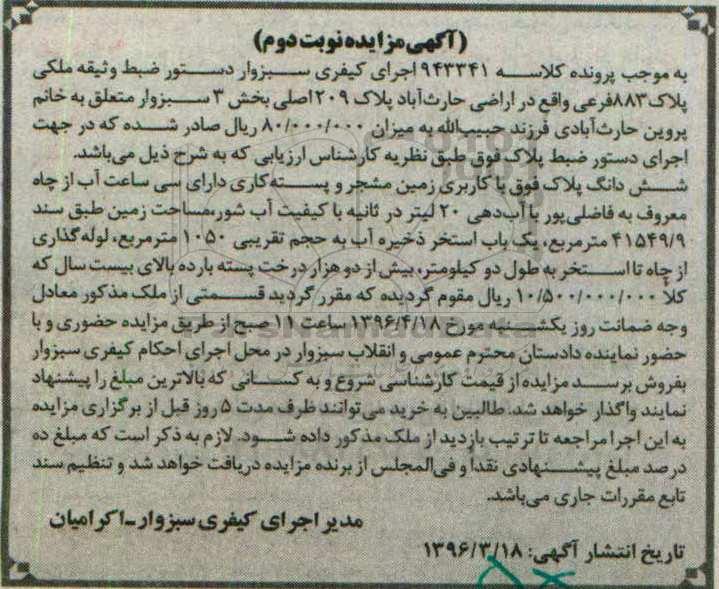 (آگهی مزایده نوبت دوم)
به موجب پرونده کلاسه ۹۴۳۳۴۱ اجرای کیفری سبزوار دستور ضبط وثیقه ملکی
پلاک ۸۸۳فرعی واقع در اراضی حارث‌آباد پلاک ۲۰۹ اصلی بخش ۳ سبزوار متعلق به خانم
پروین حارث‌آبادی فرزند حبیب‌الله به میزان ۸۰/۰۰۰/۰۰۰ ریال صادر شده که در جهت
اجرای دستور ضبط پلاک فوق طبق نظریه کارشناس ارزیابی که به شرح ذیل می‌باشد.
شش دانگ پلاک فوق با کاربری زمین مشجر و پسته‌کاری دارای سی ساعت آب از چاه
معروف به فاضلی‌پور با آب‌دهی ۲۰ لیتر در ثانیه با کیفیت آب شور،مساحت زمین طبق سند
۴۱۵۴۹/۹ مترمربع، یک باب استخر ذخیره آب به حجم تقریبی ۱۰۵۰ مترمربع، لوله‌گذاری
از چاه تا استخر به طول دو کیلومتر، بیش از دو هزار درخت پسته بارده بالای بیست سال که
کلاً ۱۰/۵۰۰/۰۰۰/۰۰۰ ریال مقوم گردیده که مقرر گردید قسمتی از ملک مذکور معادل
وجه ضمانت روز یکشنبه مورخ ۱۳۹۶/۴/۱۸ ساعت ۱۱ صبح از طریق مزایده حضوری و با
حضور نماینده دادستان محترم عمومی و انقلاب سبزوار در محل اجرای احکام کیفری سبزوار
بفروش برسد مزایده از قیمت کارشناسی شروع و به کسانی که بالاترین مبلغ را پیشنهاد
نمایند واگذار خواهد شد. طالبین به خرید می‌توانند ظرف مدت ۵ روز قبل از برگزاری مزایده
به این اجرا مراجعه تا ترتیب بازدید از ملک مذکور داده شود. لازم به ذکر است که مبلغ ده
درصد مبلغ پیشنهادی نقداً و فی‌المجلس از برنده مزایده دریافت خواهد شد و تنظیم سند
تابع مقررات جاری می‌باشد.
مدیر اجرای کیفری سبزوار-اکرامیان
تاریخ انتشار آگهی: ۱۳۹۶/۳/۱۸